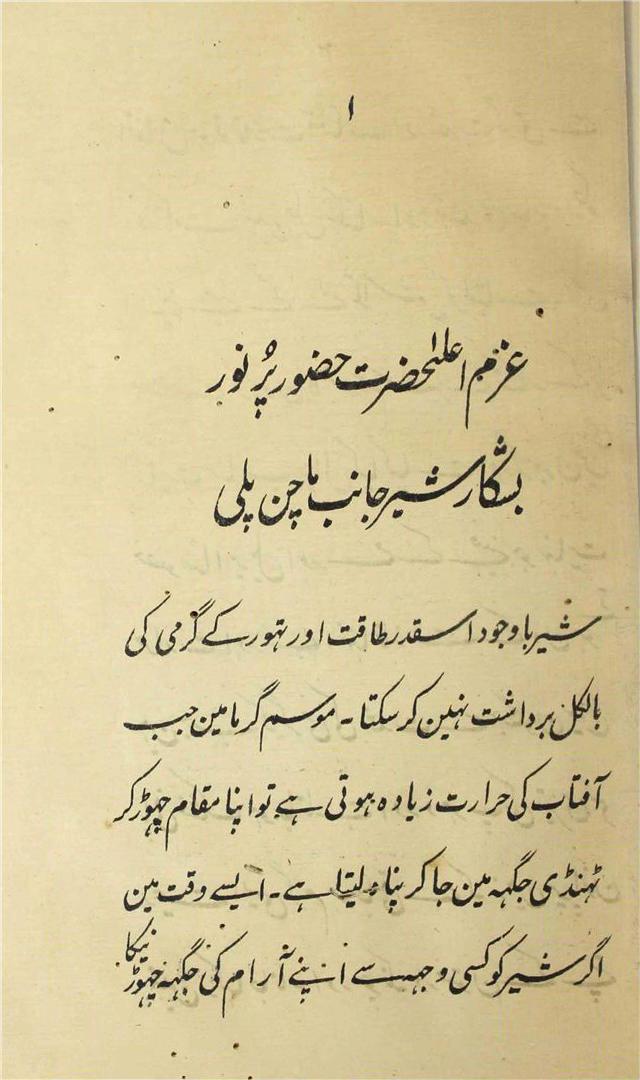 ۱
عزم اعلیٰحضرت حضور پُر نور
بشکار شیر جانب ماچن پلی
شیر باوجود اسقدر طاقت اور تہور کے گرمی کی
بالکل برداشت نہین کر سکتا۔ موسم گرما مین جب
آفتاب کی حرارت زیادہ ہوتی ہے تو اپنا مقام چھوڑ کر
ٹہنڈی جگہہ مین جا کر پناہ لیتا ہے۔ ایسے وقت مین
اگر شیر کو کسی وجہہ سے اپنے آرام کی جگہہ چھوڑنیکا